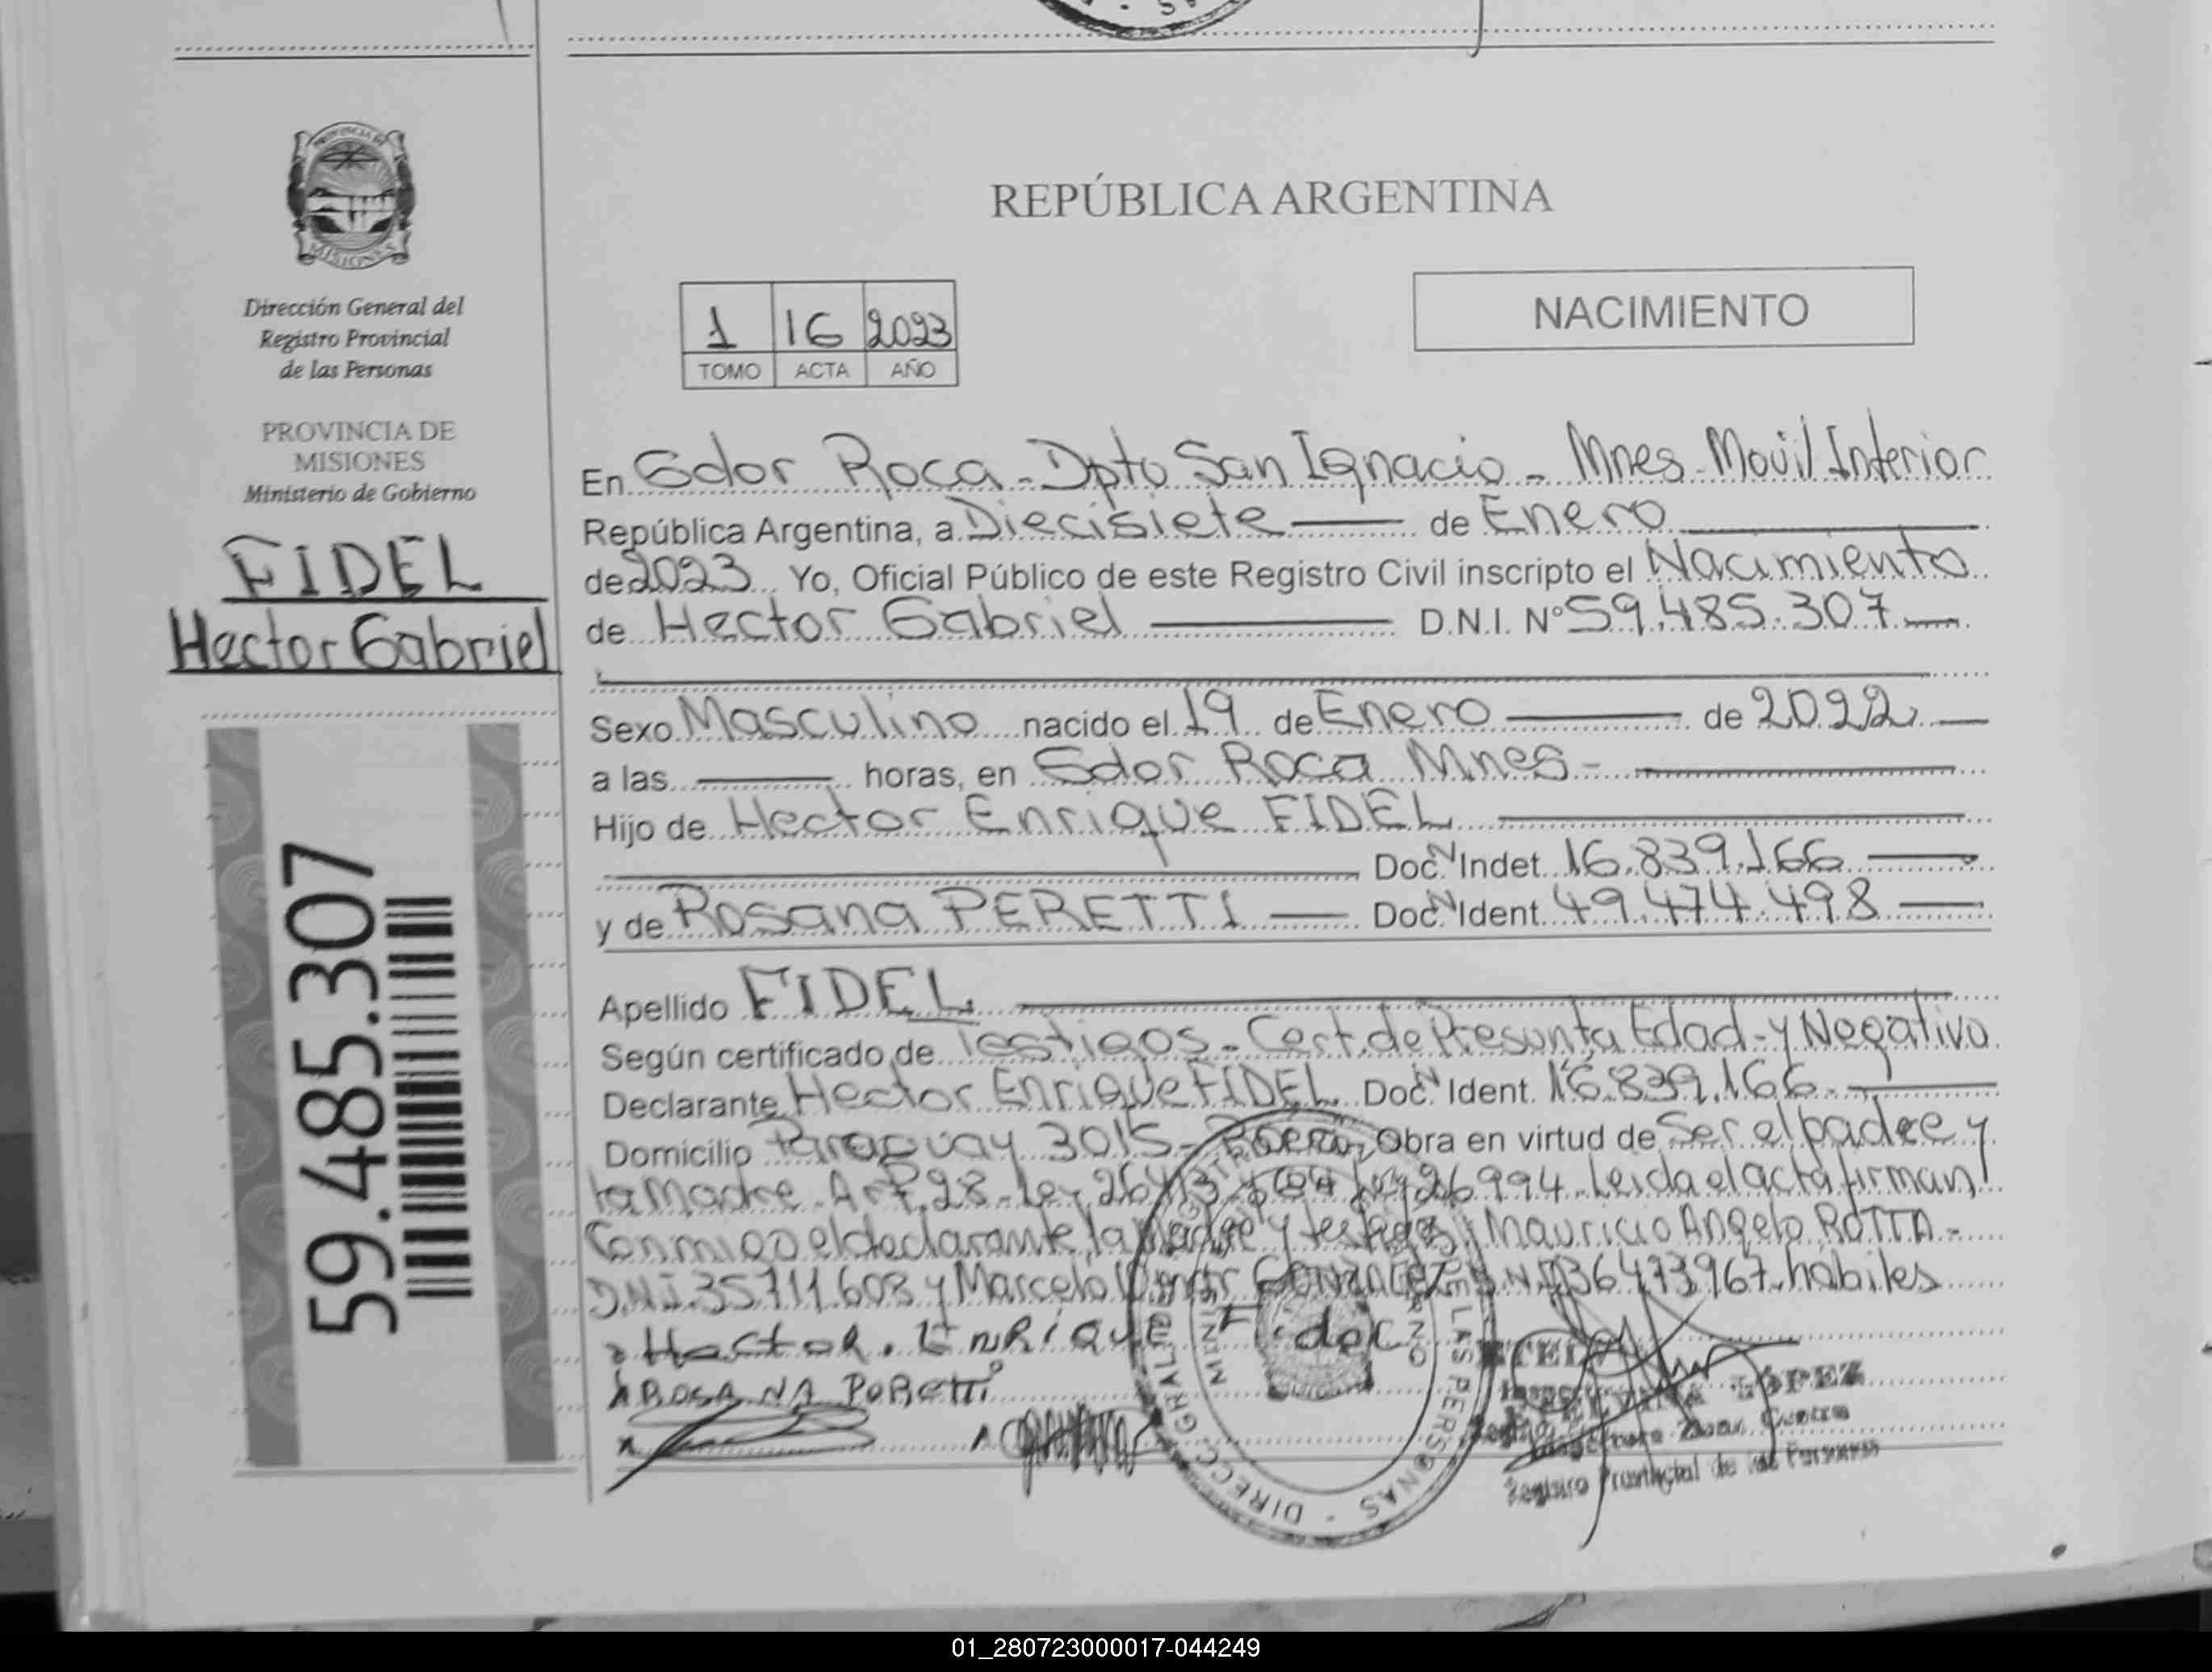 REPÚBLICA ARGENTINA
Dirección General del
Registro Provincial
de las Personas
PROVINCIA DE
MISIONES
Ministerio de Gobierno
FIDEL
Hector Gabriel
59.485.307
1 16 2023
TOMO ACTA AÑO
NACIMIENTO
En Gdor Roca - Dpto San Ignacio - Mnes - Movil Interior
República Argentina, a Diecisiete de Enero
de 2023 Yo, Oficial Público de este Registro Civil inscripto el Nacimiento
de Hector Gabriel D.N.I. Nº 59.485.307
Sexo Masculino nacido el 19 de Enero de 2022
a las horas, en Gdor Roca Mnes -
Hijo de Hector Enrique FIDEL
Doc. N Indet 16.839.166
y de Rosana PERETTI Doc. N Ident. 49.474.498
Apellido FIDEL
Según certificado de Testigos - Cert. de Presunta Edad - y Negativo
Declarante Hector Enrique FIDEL Doc. N Ident. 16.839.166.
Domicilio Paraguay 3015 - Obra en virtud de Ser el padre y
la Madre. Art. 28 - Ley 26413 Ley 26994. Leida el acta firman
Conmigo el declarante, la Madre y testigos Mauricio Angelo ROTTA -
D.N.I. 35711.603 y Marcelo DNI 36473967. habiles
Hector. Enrique Fidel
ROSANA PeRetti
LÓPEZ
Zona Centro
Registro Provincial de las Personas
DIRECC. GRAL. DEL LAS PERSONAS
01_280723000017-044249